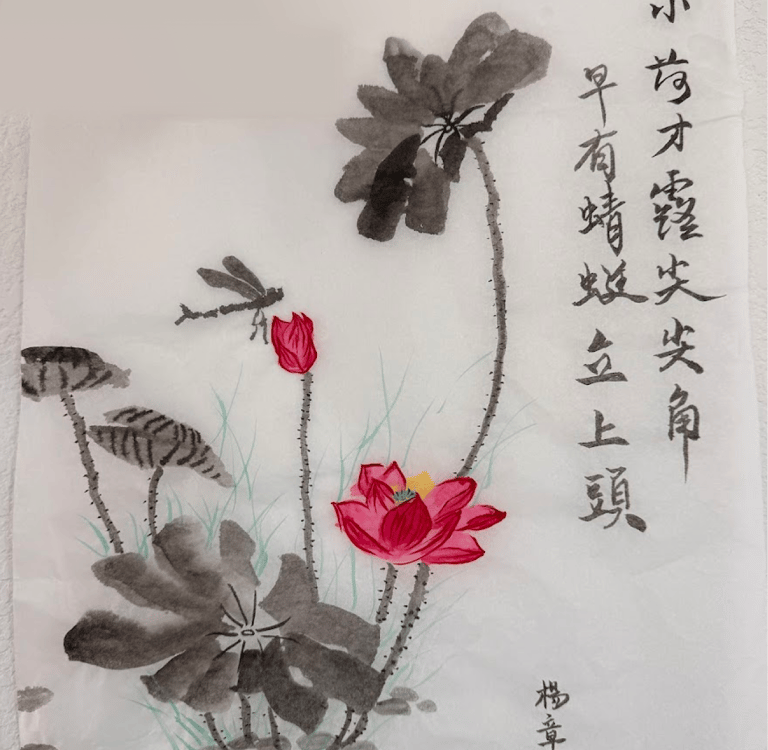 小荷才露尖尖角
早有蜻蜓立上頭
楊章